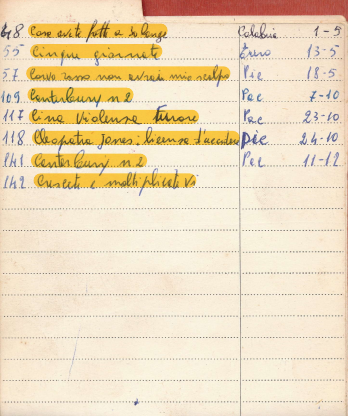 48 Cosa avete fatto a Solange Calabria 1-5
55 Cinque giornate 13-5
57 Corvo rosso non avrai mio scalpo Pic 18-5
109 Canterbury n 2 Pac 7-10
117 Cina Violenza Furore Pac 23-10
118 Cleopatra Jones: licenza d'uccidere Pic 24-10
141 Canterbury n 2 Pac 11-12
142 Crescete e moltiplicatevi